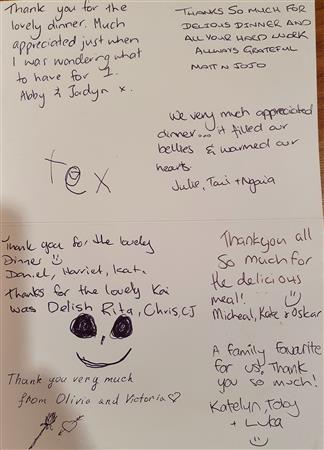 Thank you for the
lovely dinner. Much
appreciated just when
I was wondering what
to have for 1.
Abby & Jordyn x.
THANKS SO MUCH FOR
DELICIOUS DINNER AND
ALL YOUR HARD WORK
ALWAYS GRATEFUL
MATT N JOJO
We very much appreciated
dinner... it filled our
bellies & warmed our
hearts.
Julie, Tai + Ngaia
Tex
Thank you for the lovely
Dinner
Daniel, Harriet, Kat.
Thanks for the lovely Kai
was Delish Rita, Chris, CJ
Thank you very much
from Olivia and Victoria
Thankyou all
so much for
the delicious
meal!
Micheal, Kate & Oskar
A family favourite
for us, Thank
you so much!
Katelyn, Toby
+ Luka